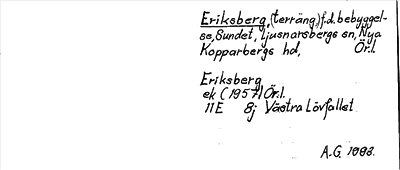 Eriksberg, (terräng) f.d. bebyggel-
se, Sundet, Ljusnarsbergs sn, Nya
Kopparbergs hd, Ör.l.
Eriksberg
ek (1957) Ör.l.
11E 8j Västra Lövfallet
A.G. 1988.